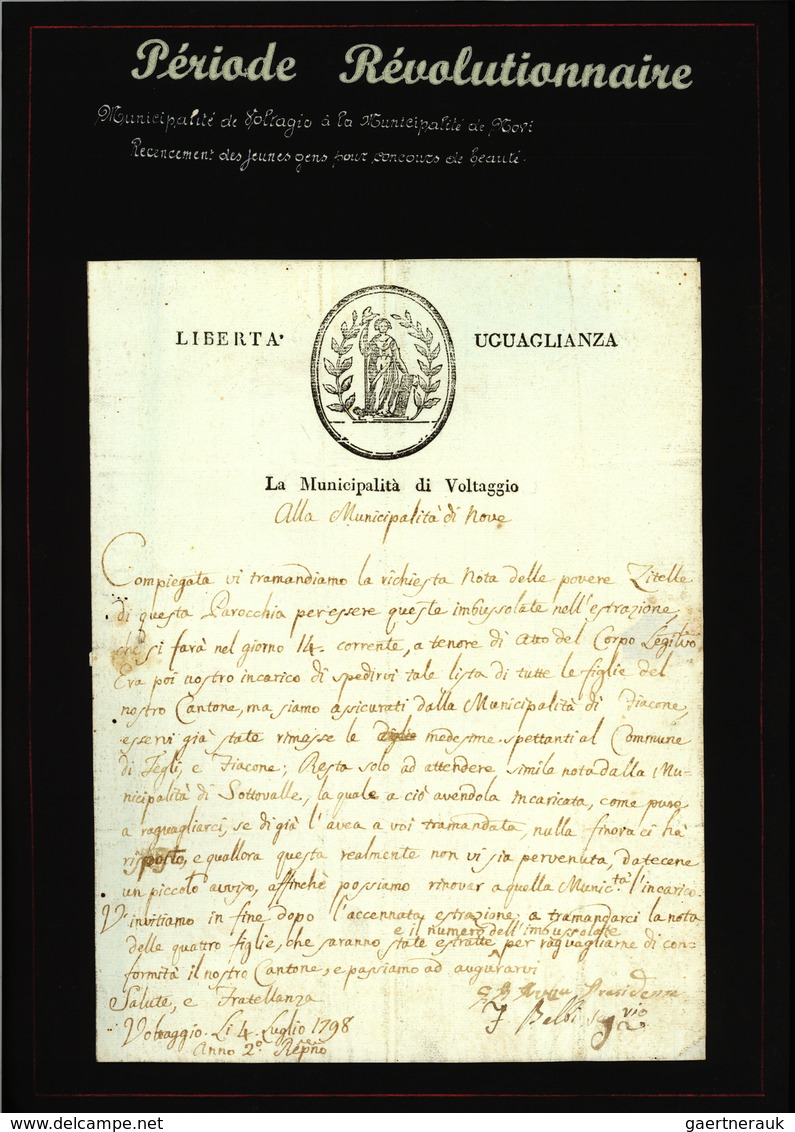 Période Révolutionnaire
Municipalité de Voltagio à la Municipalité de Novi
Recencement des jeunes gens pour concours de beauté.
LIBERTA' UGUAGLIANZA
La Municipalità di Voltaggio
Alla Municipalità di Nove
Compiegata vi tramandiamo la richiesta Nota delle povere Zitelle
di questa Parocchia per essere queste imbussolate nell'estrazione,
che si farà nel giorno 14. corrente, a tenore di Atto del Corpo Legiltivo
Era poi nostro incarico di spedirvi tale lista di tutte le figlie del
nostro Cantone, ma siamo assicurati dalla Municipalità di Fiacone,
esservi già state rimesse le medesime spettanti al Commune
di Tegli, e Fiacone; Resta solo ad attendere simile nota dalla Mu-
nicipalità di Sottovalle, la quale a ciò avendola incaricata, come pure
a raguagliarci, se di già l'avea a voi tramandata, nulla finora ci hà
risposto, e quallora questa realmente non vi sia pervenuta, datecene
un piccolo avviso, affinchè possiamo rinovar a quella Munic.tà l'incarico.
V'invitiamo in fine dopo l'accennata estrazione, a tramandarci la nota
e il numero dell'imbussolate
delle quattro figlie, che saranno state estratte per raguagliarne di con=
formità il nostro Cantone, e passiamo ad augurarvi
Salute, e Fratellanza
Presidente
Voltaggio. Li 4. Luglio 1798
F Balbi
Anno 2.º
gaertnerauk
delcampe.net